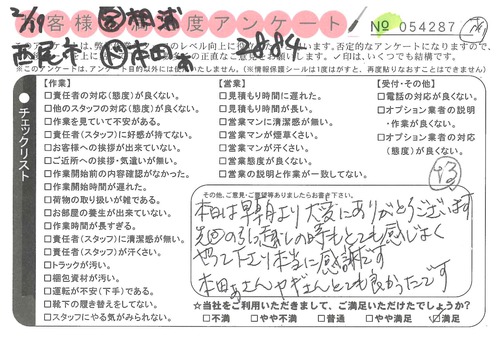 2/19 相浦
お客様満足度アンケート
№ 054287
西尾市 本田 2804
このアンケートは、弊社
レベル向上に
います。否定的なアンケートになりますので、
正直なご意見をお願いします。✓印は、いくつでも結構です。
(※このアンケートは、アンケート目的以外には使用いたしません。)(※情報保護シールは1度はがすと、再度貼りなおすことはできません。)
チェックリスト
【作業】
□責任者の対応(態度)が良くない。
□他のスタッフの対応(態度)が良くない。
□作業を見ていて不安がある。
□責任者(スタッフ)に好感が持てない。
□お客様への挨拶が出来ていない。
□ご近所への挨拶・気遣いが無い。
□作業開始前の内容確認がなかった。
□作業開始時間が遅れた。
□荷物の取り扱いが雑である。
□お部屋の養生が出来ていない。
□作業時間が長すぎる。
□責任者(スタッフ)に清潔感が無い。
□責任者(スタッフ)が汗くさい。
□トラックが汚い。
□梱包資材が汚い。
□運転が不安(下手)である。
□靴下の履き替えをしてない。
□スタッフにやる気がみられない。
【営業】
□見積もり時間に遅れた。
□見積もり時間が長い。
□営業マンに清潔感が無い。
□営業マンが煙草くさい。
□営業マンが汗くさい。
□営業態度が良くない。
□営業の説明と作業が一致してない。
【受付・その他】
□電話の対応が良くない。
□オプション業者の説明
・作業が良くない。
□オプション業者の対応
(態度)が良くない。
13
その他、ご意見・ご要望等ありましたらお書き下さい。
本日は早朝より大変にありがとうございます
先回の引っ越しの時もとても感じよく
やって下さり本当に感謝です
本田さん ヤギさんとても良かったです
☆当社をご利用いただきまして、ご満足いただけたでしょうか?
□不満 □やや不満 □普通 □やや満足 ☑満足